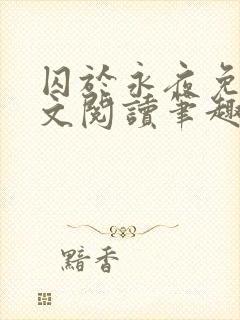 囚於永夜免
文閱讀筆趣
黯香